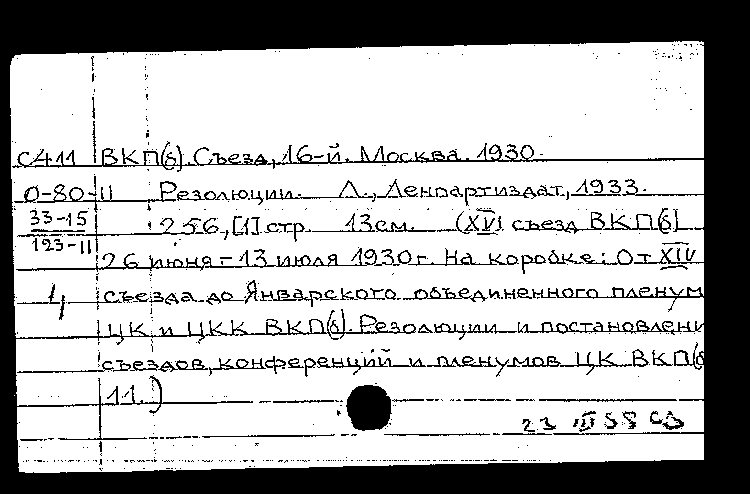 С411 ВКП(б). Съезд, 16-й. Москва. 1930.
0-80-11 Резолюции. Л., Ленпартиздат, 1933.
33-15 256, [1] стр. 13см. (XVI съезд ВКП(б)
123-11
26 июня - 13 июля 1930г. На коробке: От XIV
4 съезда до Январского объединенного пленум
ЦК и ЦКК ВКП(б). Резолюции и постановлени
съездов, конференций и пленумов ЦК ВКП(б
11.)
23 III 58